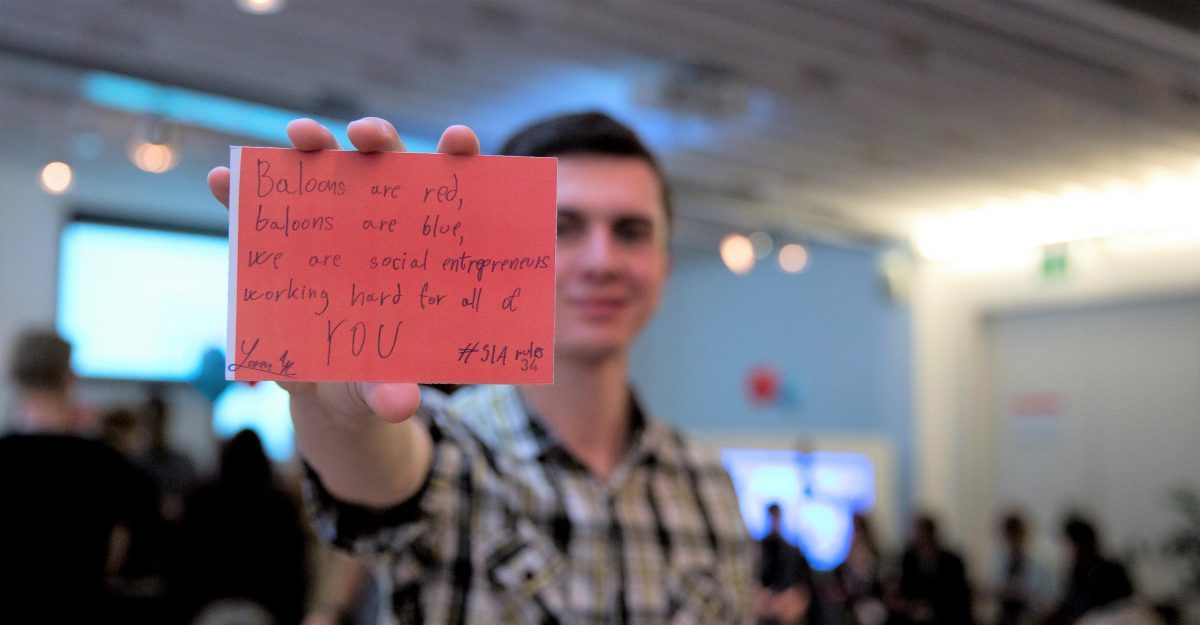 Baloons are red,
baloons are blue,
we are social entrepreneurs
working hard for all of
YOU
#SIA rules
34